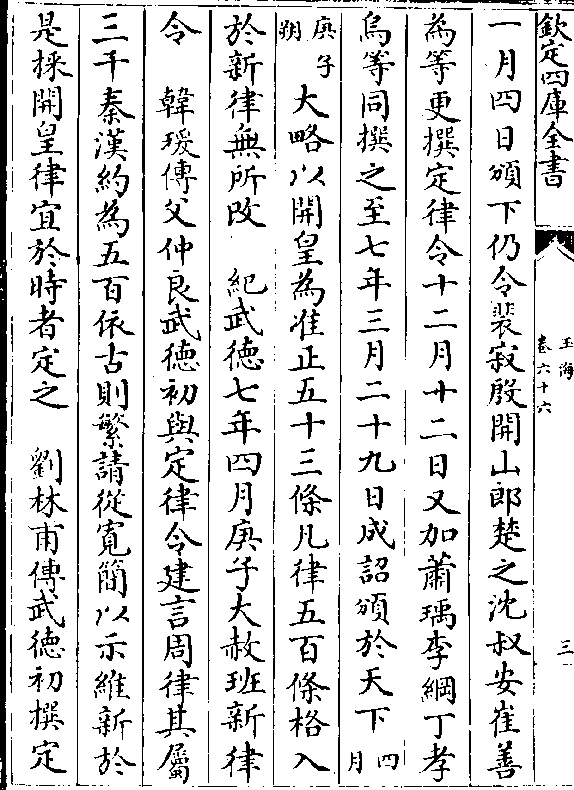 欽定四庫全書
玉海
卷六十六
三
一月四日頒下仍令裴寂殷開山郎楚之沈叔安崔善
為等更撰定律令十二月十二日又加蕭瑀李綱丁孝
烏等同撰之至七年三月二十九日成詔頒於天下四月
庚子朔大略以開皇為准正五十三條凡律五百條格入
於新律無所改　紀武德七年四月庚子大赦班新律
令　韓瑗傳父仲良武德初與定律令建言周律其屬
三千秦漢約為五百依古則繁請從寛簡以示維新於
是採開皇律宜於時者定之　劉林甫傳武德初撰定